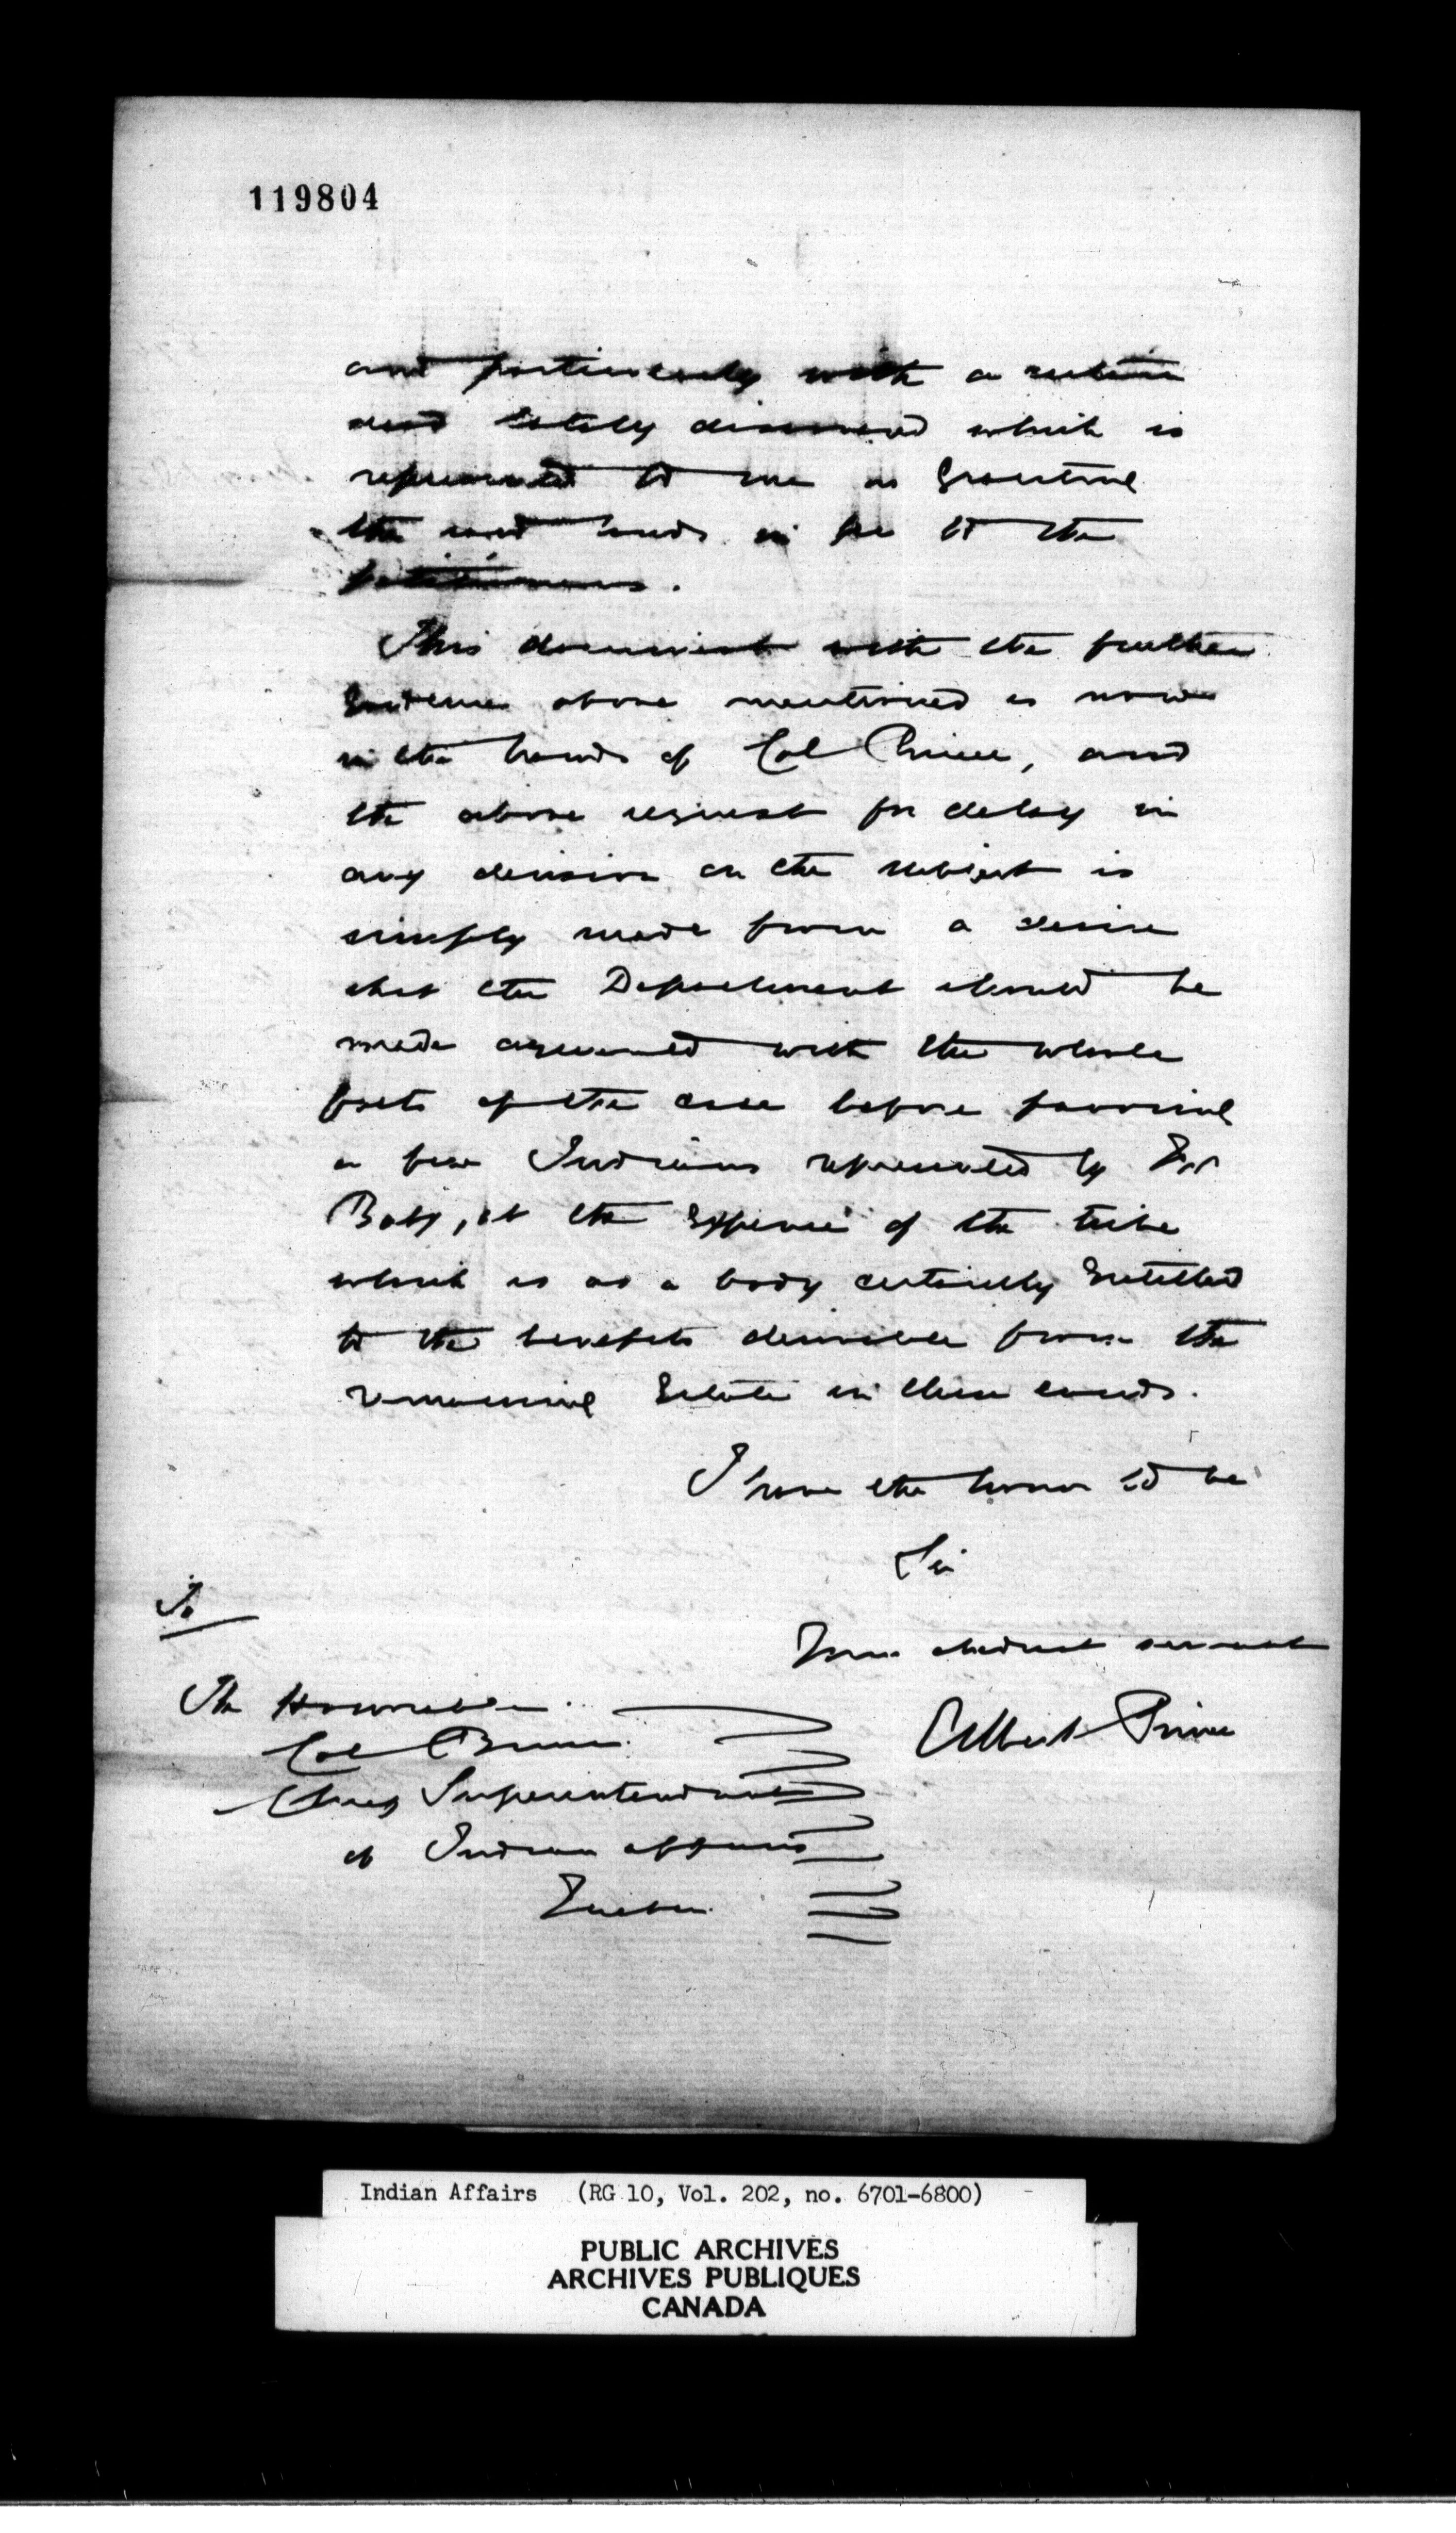 119804
and particularly with a certain
deed lately discovered which is
represented to me as granting
the said lands in fee to the
petitioners.
This document with the further
Evidence above mentioned is now
in the hands of Col Prince, and
the above request for delay in
any decision on the subject is
simply made from a desire
that the Department should be
made acquainted with the whole
facts of the case before favoring
a few Indians represented by
Baby, at the Expense of the tribe
which is as a body certainly Entitled
to the benefits derivable from the
remaining Estate in these lands.
I have the honor to be
Sir
Your obedient servant
Albert Prince
To
The Honorable
Col
Chief Superintendent
of Indian affairs
Quebec
Indian Affairs (RG 10, Vol. 202, no. 6701-6800)
PUBLIC ARCHIVES
ARCHIVES PUBLIQUES
CANADA